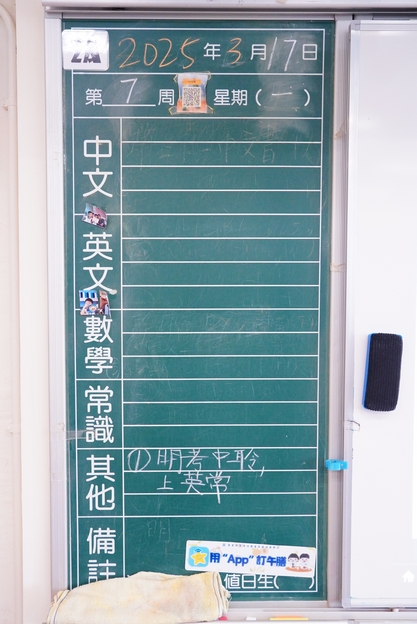 2025年3月17日
第7周 星期(一)
中文
英文
數學
常識
其他
①明考中聆,
上英常
備註
用"App"訂午膳
值日生( )